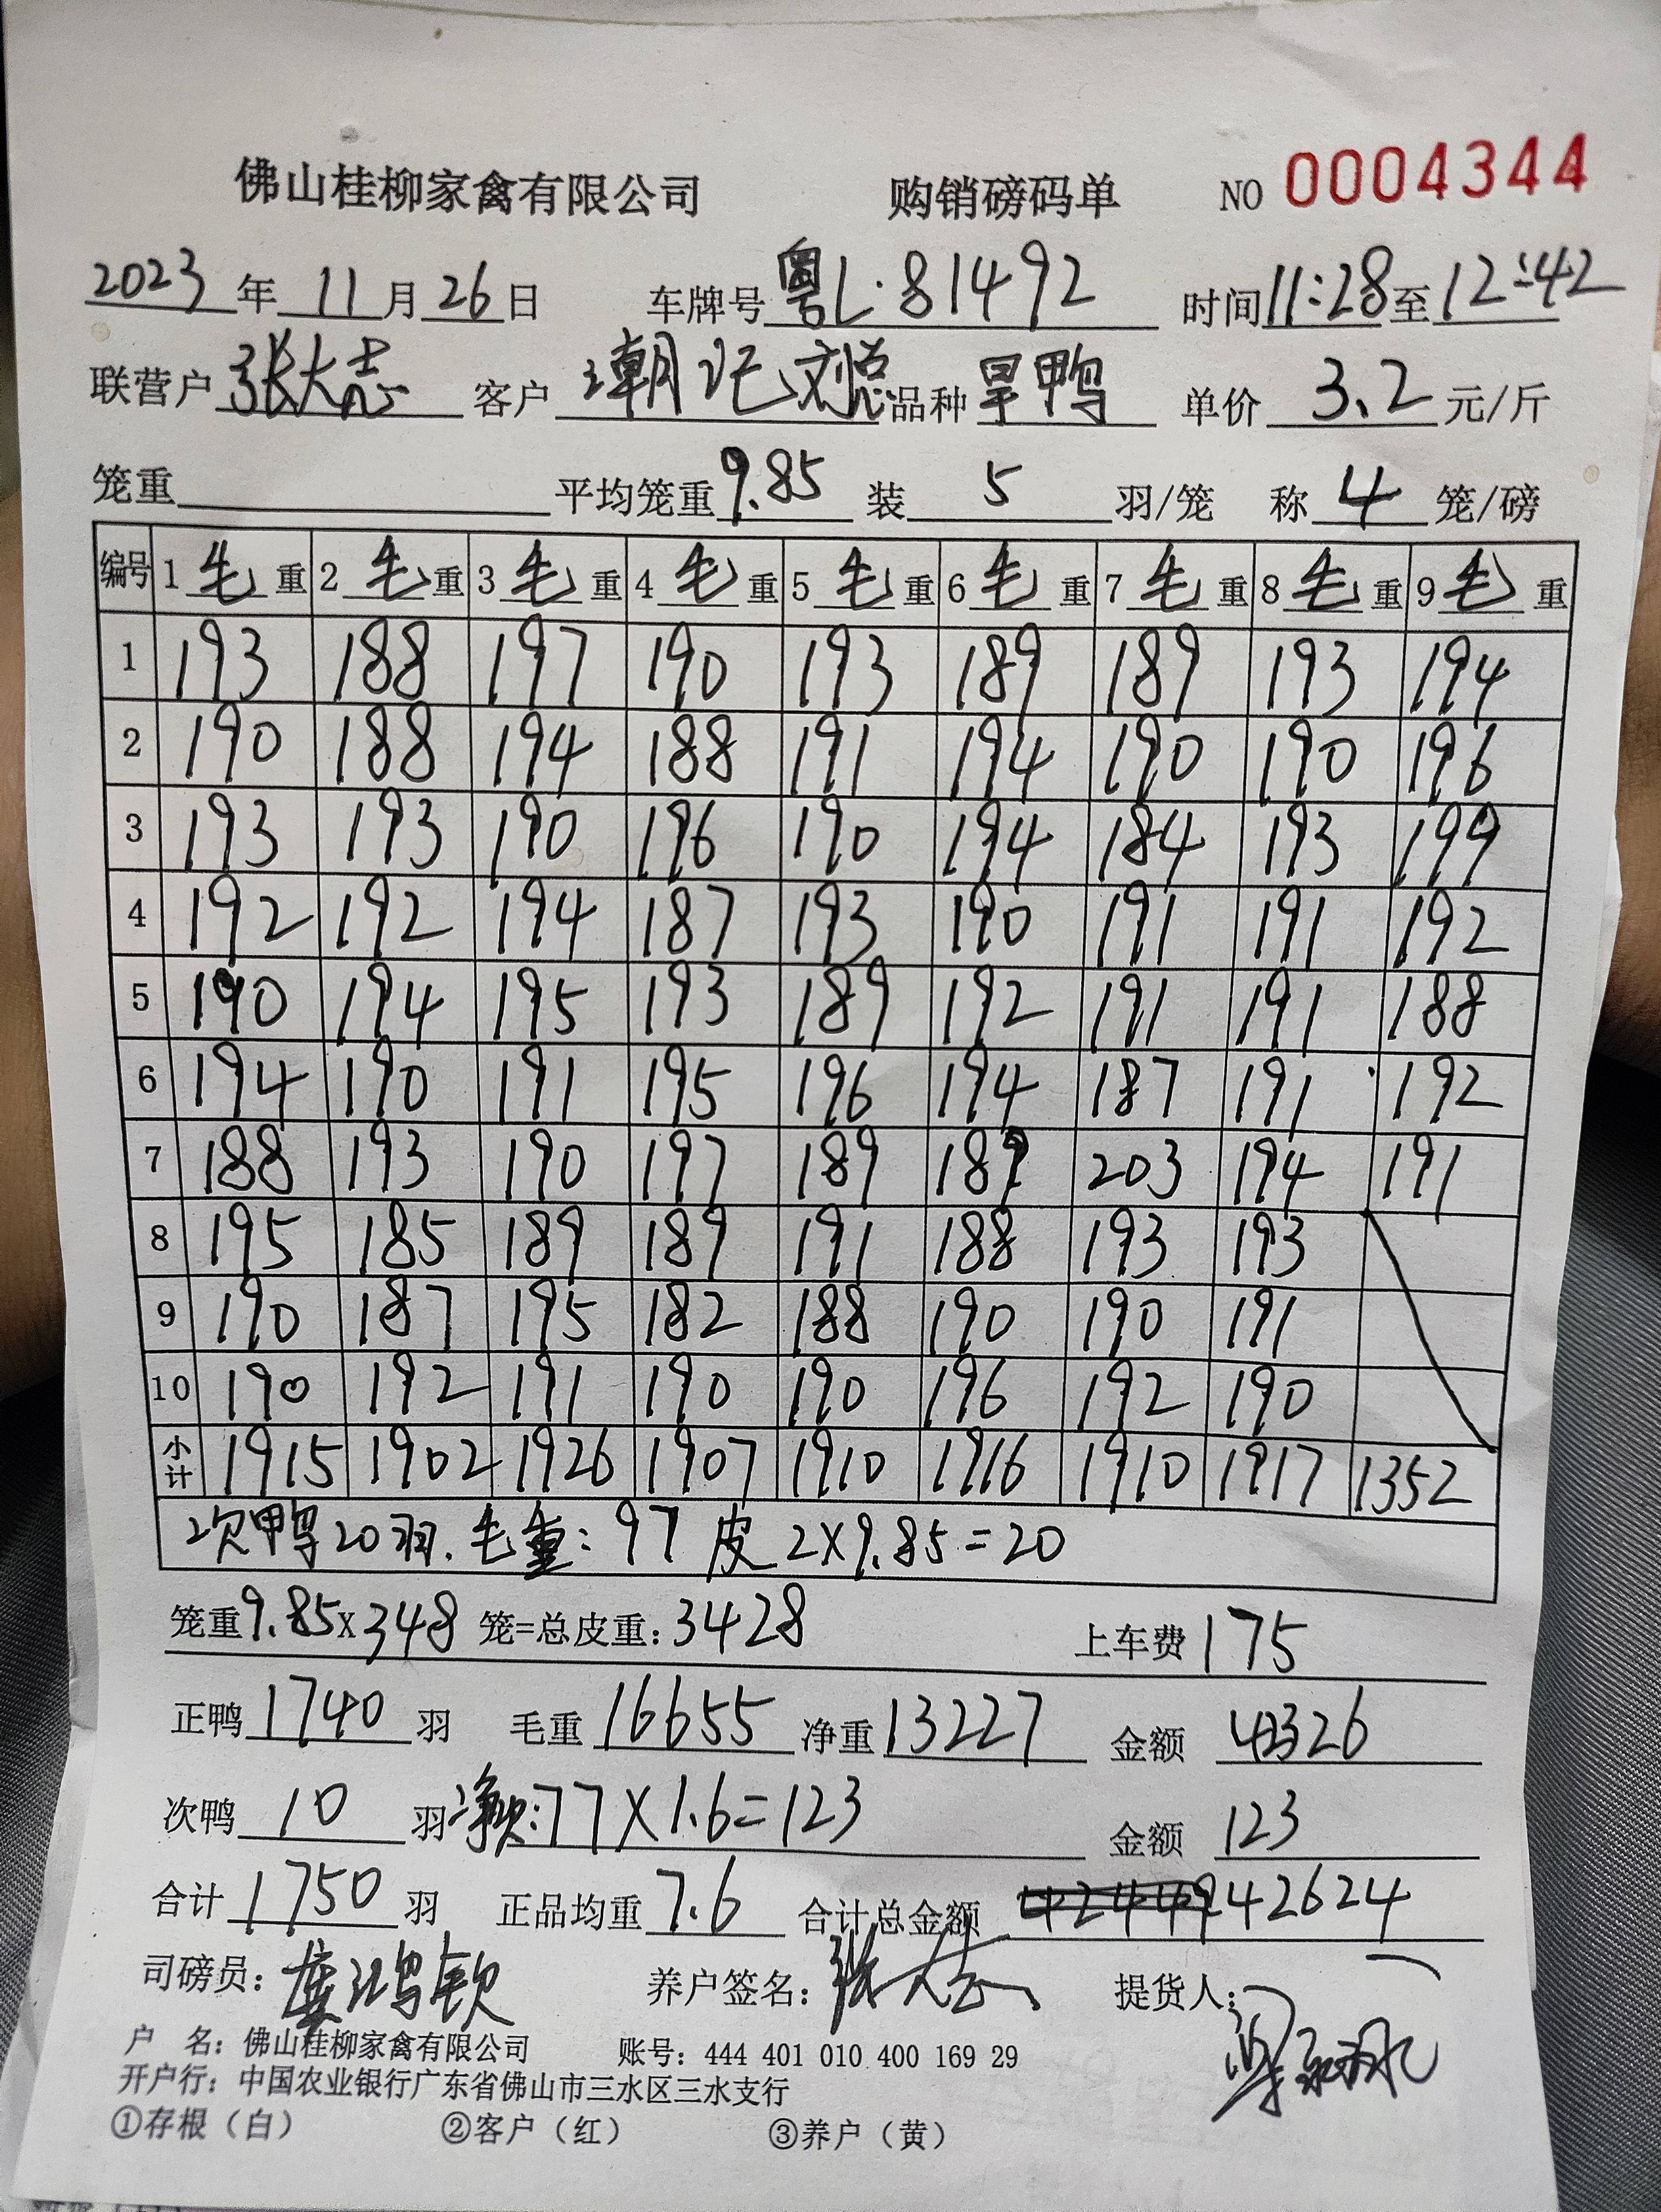 佛山桂柳家禽有限公司 购销磅码单 NO 0004344
2023年11月26日 车牌号粤L·81492 时间11:28至12:42
联营户张大志 客户潮记刘总 品种旱鸭 单价3.2元/斤
笼重 平均笼重9.85 装5羽/笼 称4笼/磅
编号 1毛重 2毛重 3毛重 4毛重 5毛重 6毛重 7毛重 8毛重 9毛重
1 193 188 197 190 193 189 189 193 194
2 190 188 194 188 191 194 190 190 196
3 193 193 190 196 190 194 184 193 199
4 192 192 194 187 193 190 191 191 192
5 190 194 195 193 189 192 191 191 188
6 194 190 191 195 196 194 187 191 192
7 188 193 190 197 189 189 203 194 191
8 195 185 189 189 191 188 193 193
9 190 187 195 182 188 190 190 191
10 190 192 191 190 190 196 192 190
小计 1915 1902 1926 1907 1910 1916 1910 1917 1352
次鸭20羽. 毛重:97 皮2X9.85=20
笼重9.85X348笼=总皮重:3428 上车费175
正鸭1740羽 毛重16655 净重13227 金额42326
次鸭10羽 净:77X1.6=123 金额123
合计1750羽 正品均重7.6 合计总金额 42449 42624
司磅员: 鸿钦 养户签名: 张大志 提货人:
户 名: 佛山桂柳家禽有限公司 账号: 444 401 010 400 169 29
开户行: 中国农业银行广东省佛山市三水区三水支行
①存根(白) ②客户(红) ③养户(黄)